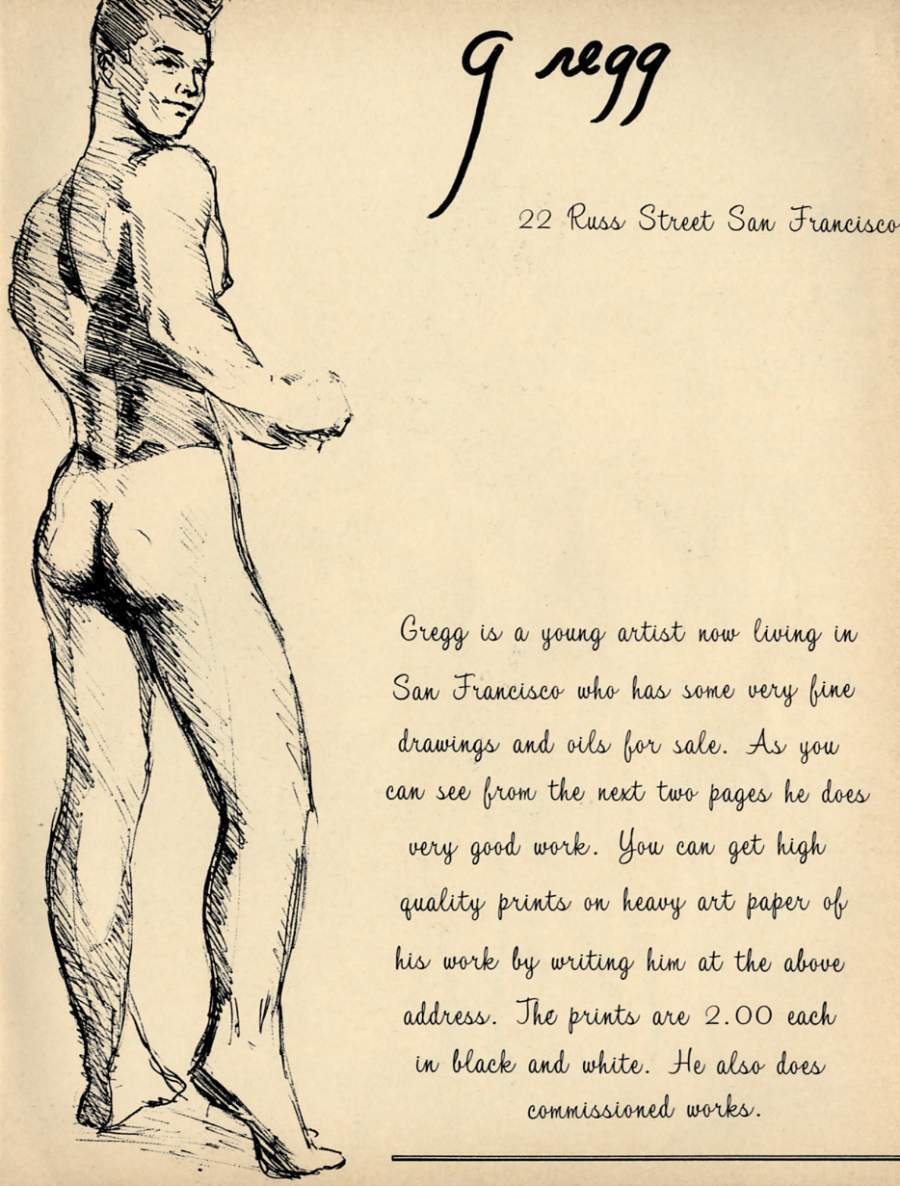 Gregg
22 Russ Street San Francisco
Gregg is a young artist now living in
San Francisco who has some very fine
drawings and oils for sale. As you
can see from the next two pages he does
very good work. You can get high
quality prints on heavy art paper of
his work by writing him at the above
address. The prints are 2.00 each
in black and white. He also does
commissioned works.